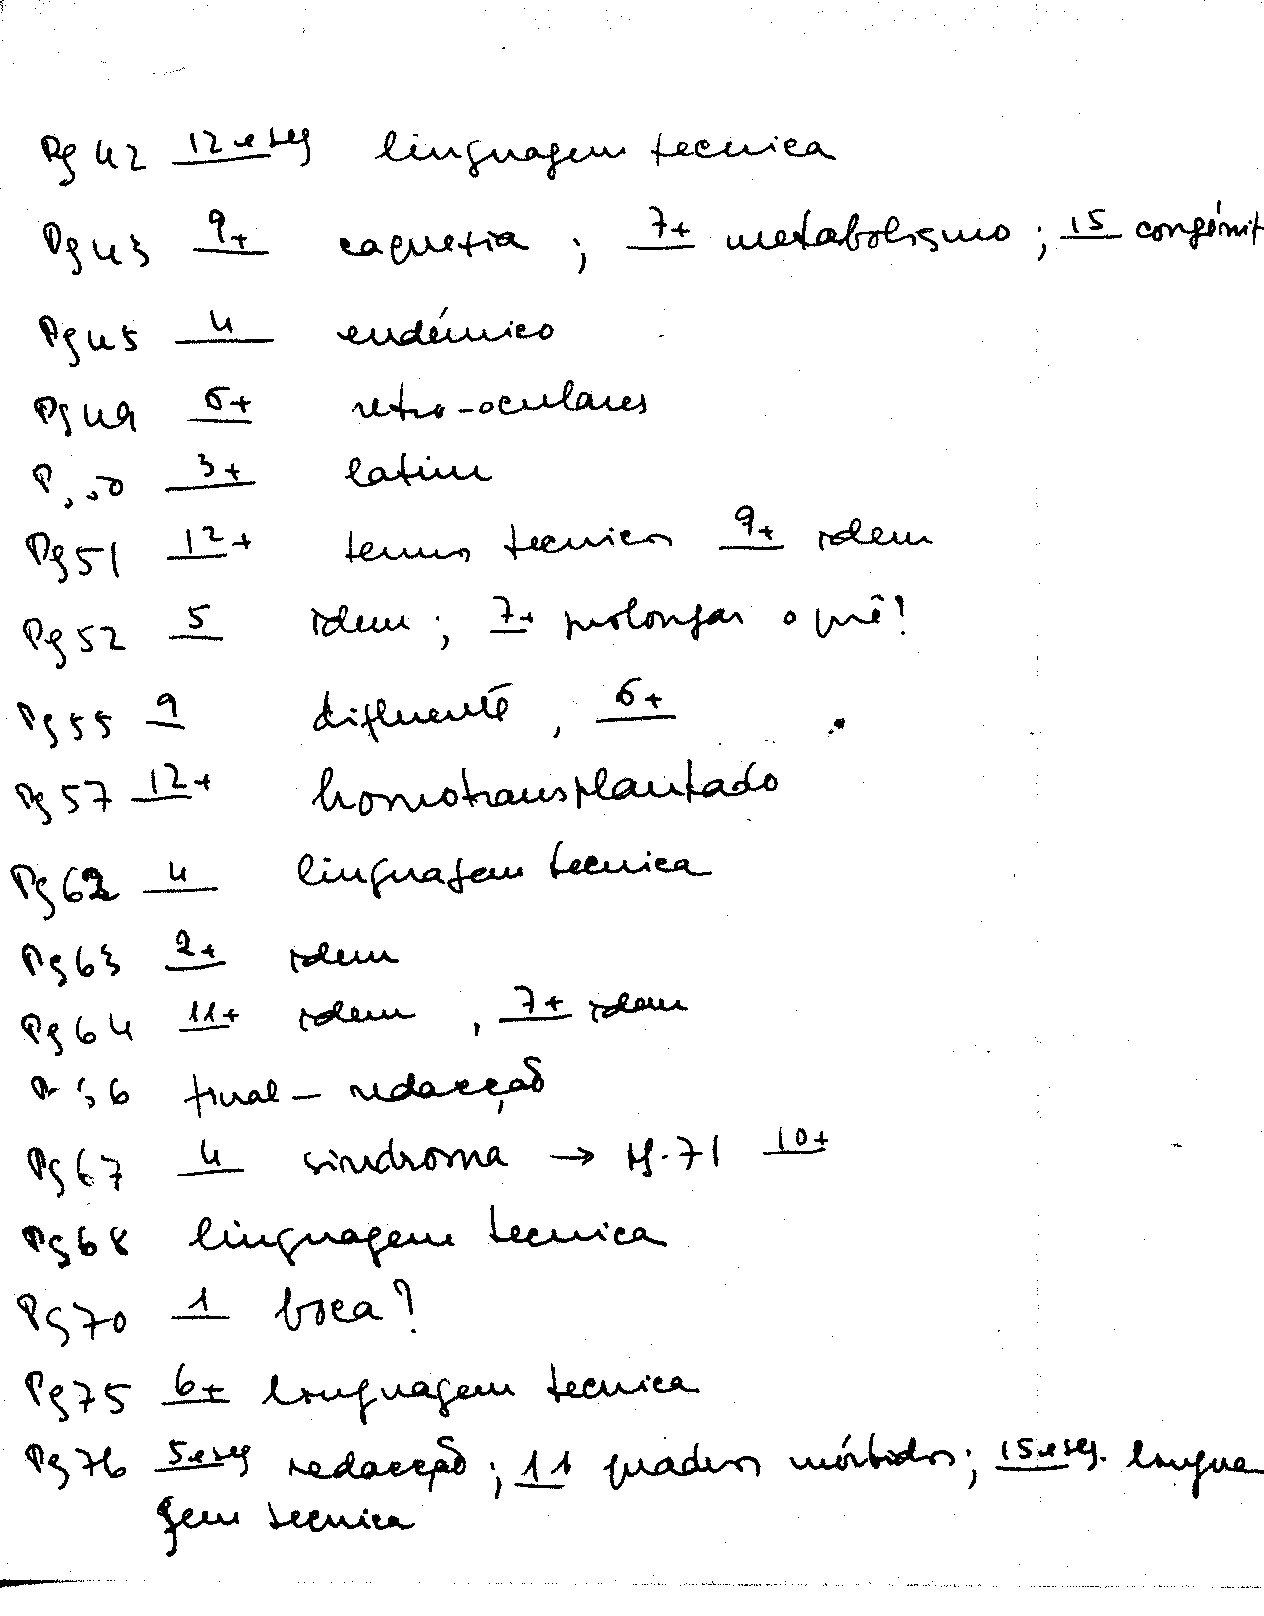 Pg 42 12 e seg linguagem tecnica
Pg 43 9+ caquexia ; 7+ metabolismo ; 15 congénit
Pg 45 4 endémico
Pg 49 6+ retro-oculares
3+ latim
Pg 51 12+ termos tecnicos 9+ idem
Pg 52 5 idem ; 7+ prolongar o quê?
Pg 55 9 difluente , 6+
Pg 57 12+ homotransplantado
Pg 62 4 linguagem tecnica
Pg 63 2+ idem
Pg 64 11+ idem , 7+ idem
final - redacção
Pg 67 4 sindroma → pg. 71 10+
Pg 68 linguagem tecnica
Pg 70 1 boca?
Pg 75 6+ linguagem tecnica
Pg 76 5 e seg redacção ; 11 quadros mórbidos ; 15 e seg. lingua
gem tecnica